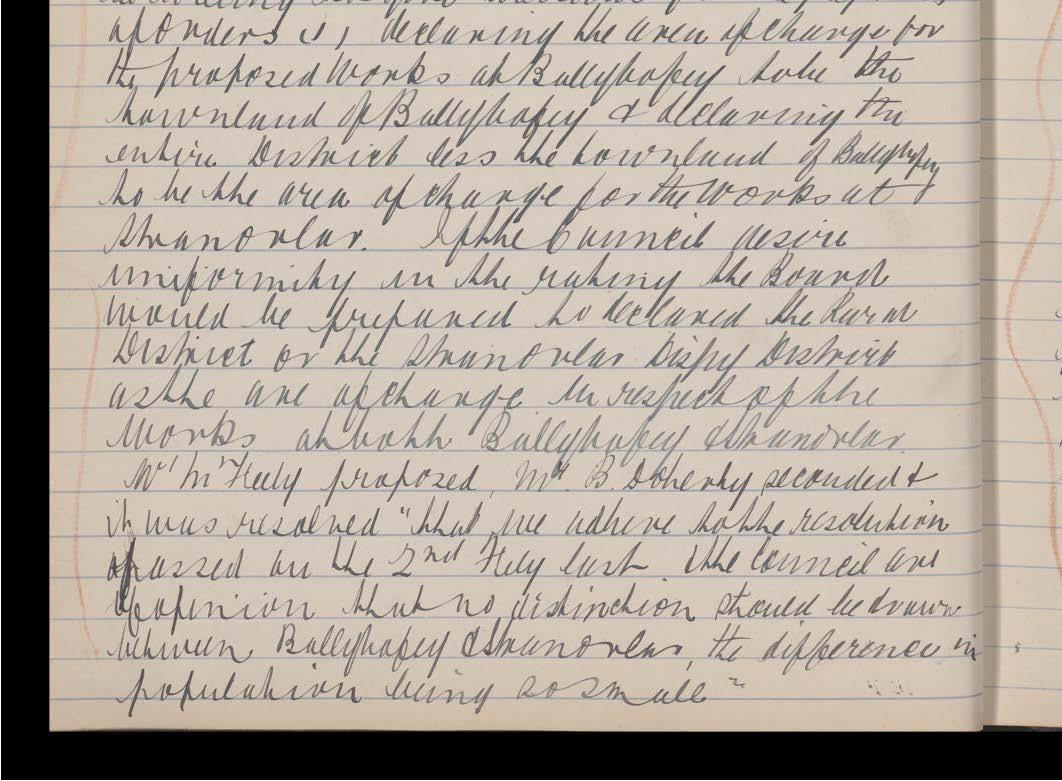 of Orders is, declaring the area of charge for
the proposed Works at Ballybofey to be the
townland of Ballybofey & declaring the
entire District less the townland of Ballybofey
to be the area of charge for the Works at
Stranorlar. If the Council desire
uniformity in the rating the Board
would be prepared to declared the Rural
District or the Stranorlar Dispy District
as the are of charge in respect of the
Works at both Ballybofey & Stranorlar.
Mr McFeely proposed, Mr. B. Doherty seconded &
it was resolved "that we adhere to the resolution
passed on the 2nd Feby last the Council are
of opinion that no distinction should be drawn
between Ballybofey & Stranorlar, the difference in
population being so small"